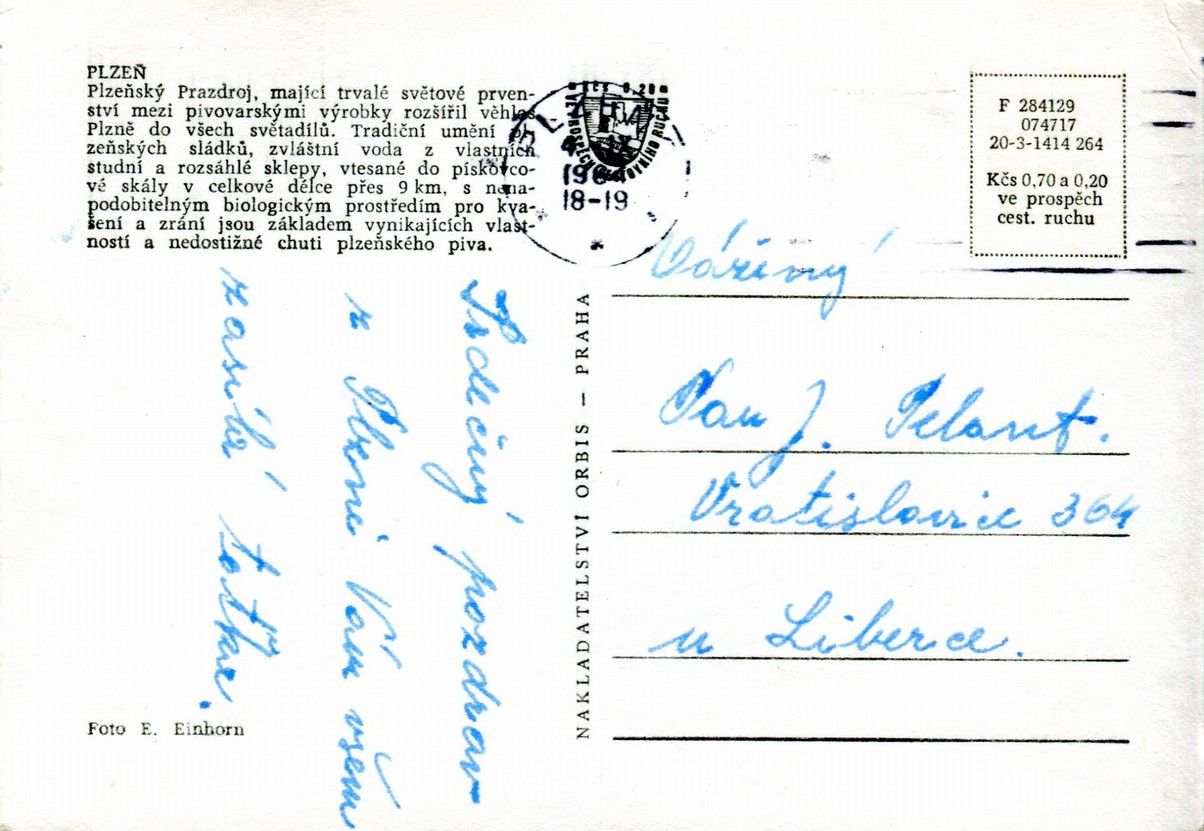 PLZEŇ
Plzeňský Prazdroj, mající trvalé světové prven-
ství mezi pivovarskými výrobky rozšířil věhlas
Plzně do všech světadílů. Tradiční umění pl-
zeňských sládků, zvláštní voda z vlastních
studní a rozsáhlé sklepy, vtesané do pískovco-
vé skály v celkové délce přes 9 km, s nena-
podobitelným biologickým prostředím pro kva-
šení a zrání jsou základem vynikajících vlast-
ností a nedostižné chuti plzeňského piva.
Srdečný pozdrav
z Plzně Vám všem
zasílá
Foto E. Einhorn
NAKLADATELSTVÍ ORBIS — PRAHA
KČS 0,20
VE PROSPĚCH CESTOVNÍHO RUCHU
18-19
F 284129
074717
20-3-1414 264
Kčs 0,70 a 0,20
ve prospěch
cest. ruchu
Vážený
Pan J. Pelant.
Vratislavice 364
u Liberce.